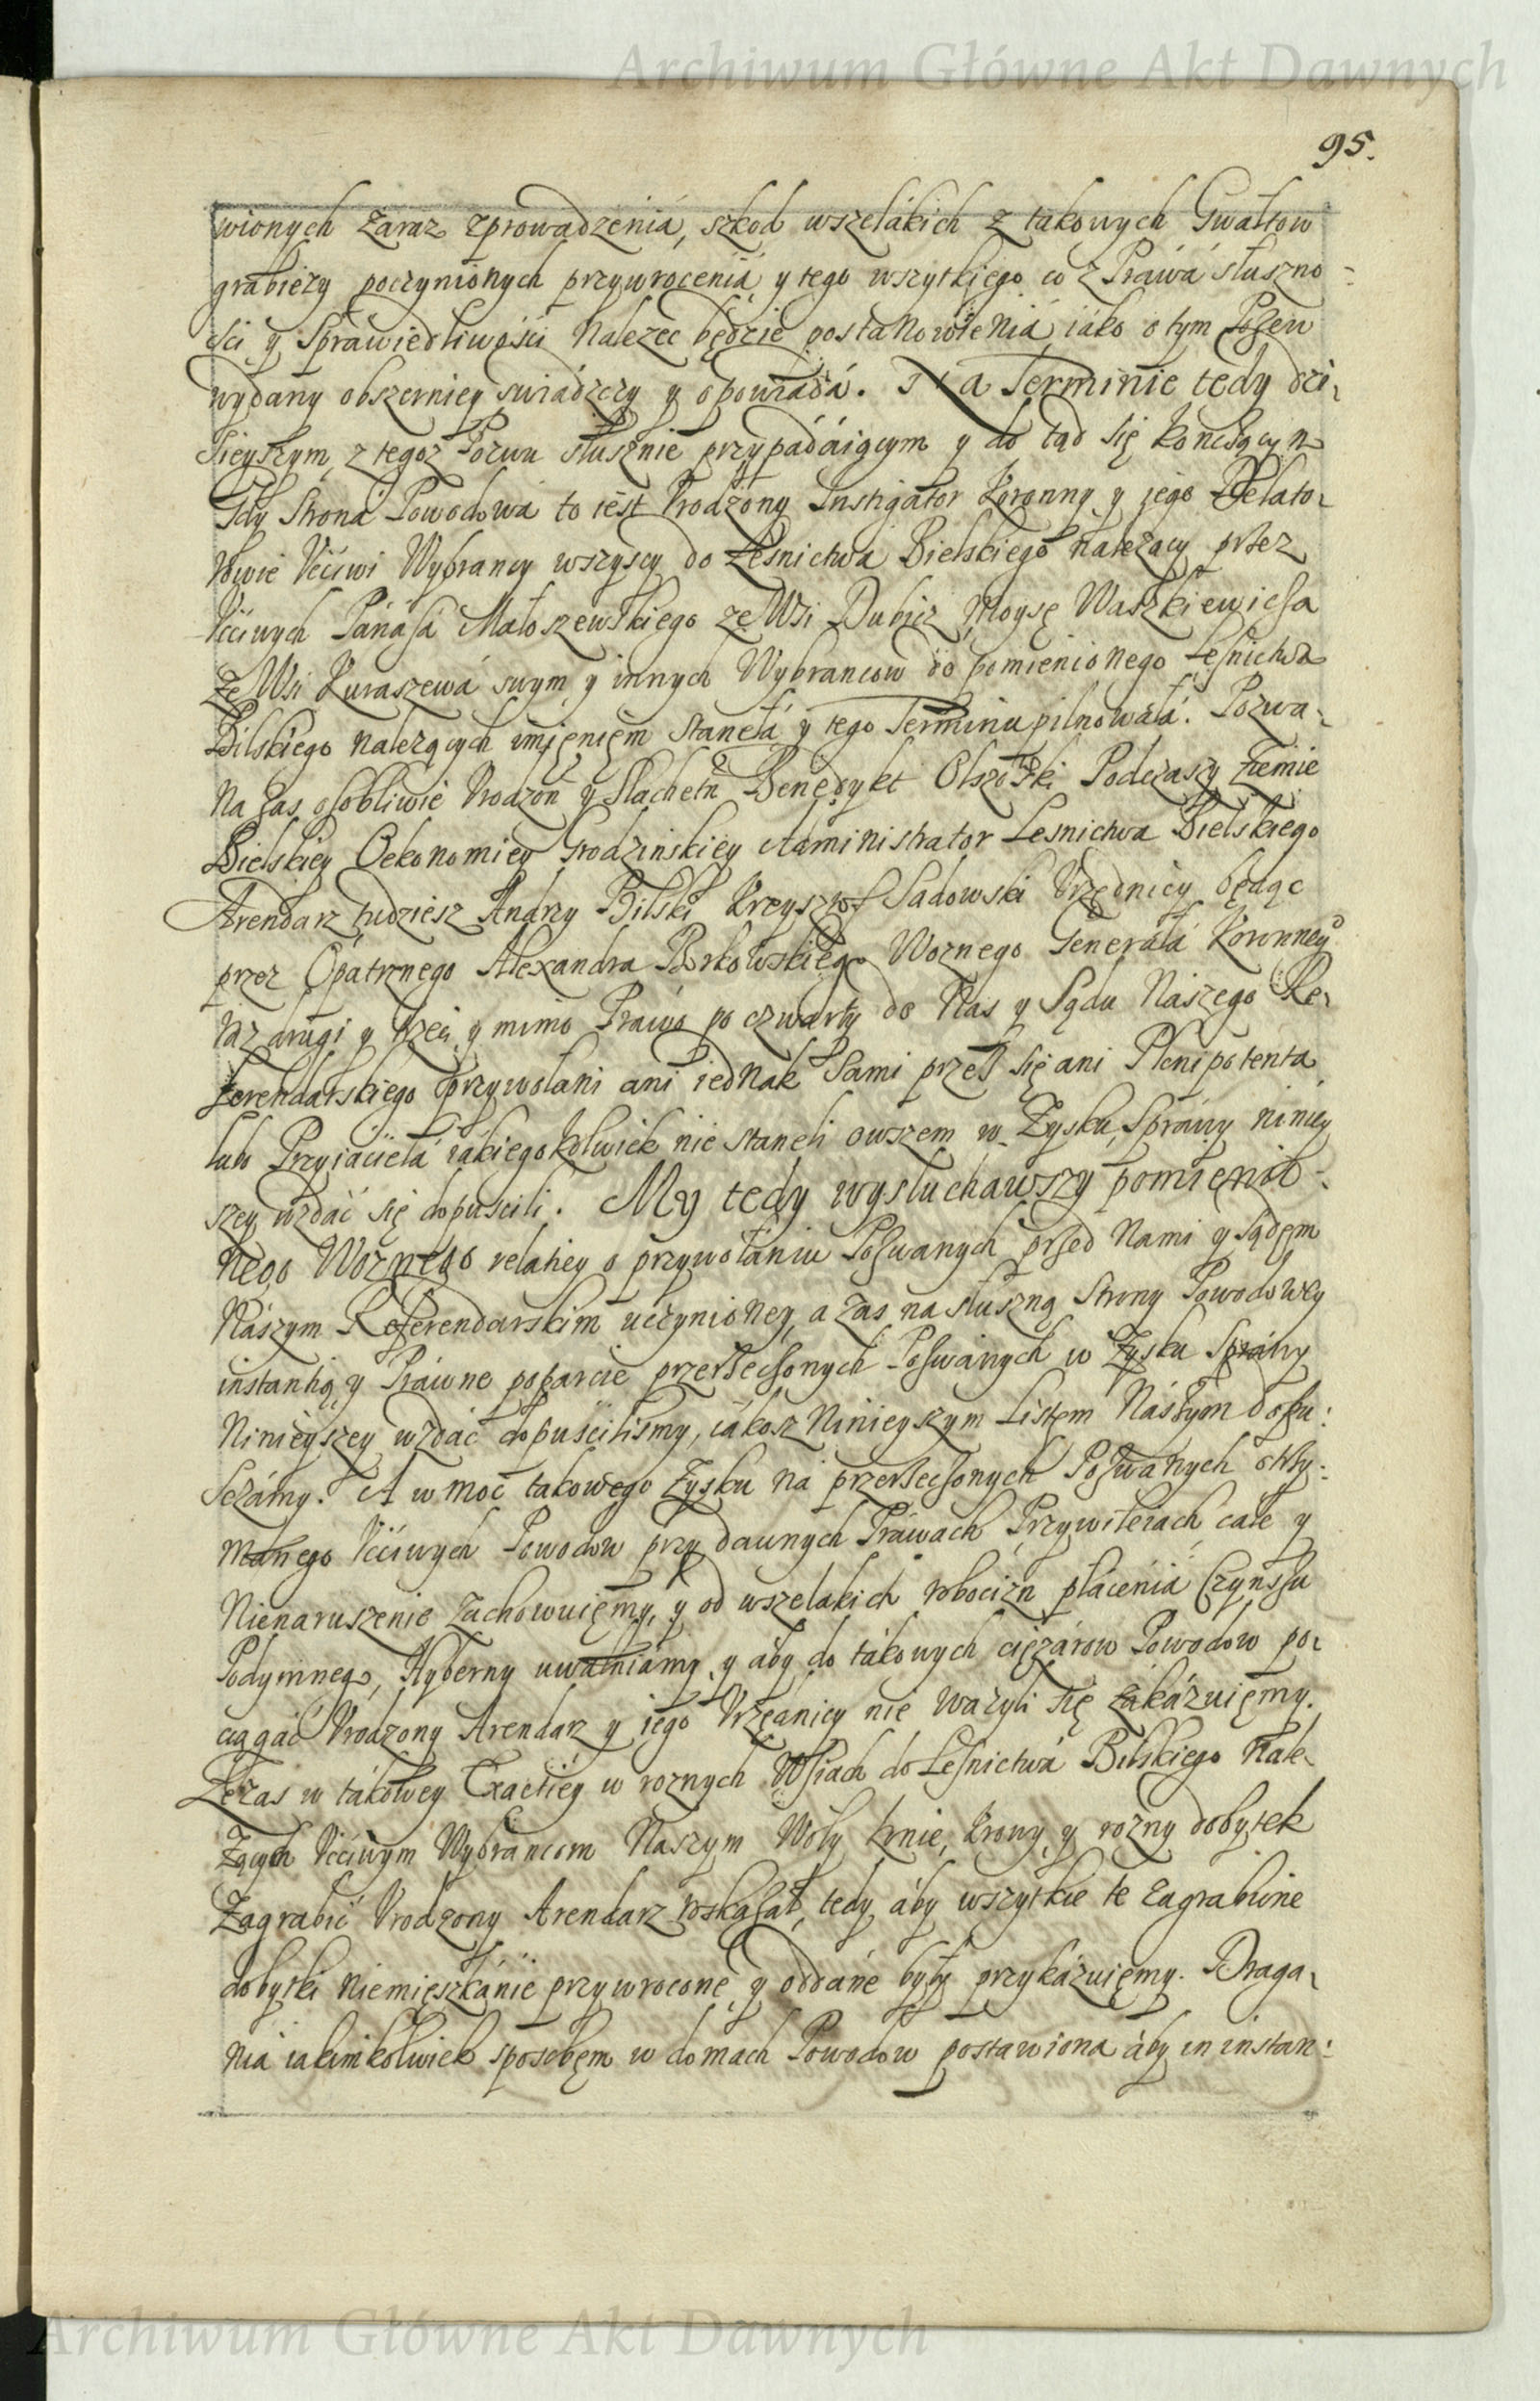 Archiwum Główne Akt Dawnych
95.
wionych zaraz zprowadzeniá, szkod wszelákich z takowych Gwałtow
grabieży poczynionych przywroceniá y tego wszytkiego co z Práwá słuszno-
ści y Spráwiedliwości Należeć będzie postanowieniá iáko o tym Pozew
wydany obszerniey swiádczy y opowiáda. Na Terminie tedy dzi-
sieyszym z tegoż Pozwu słusznie przypadáiącym y do tąd się kończącym
Gdy Strona Powodowa to iest Vrodzony Instigator Koronny y jego Delato-
rowie Vććiwi Wybrancy wszyscy do Leśnictwa Bielskiego należący przez
Vććiwych Pánásá Małoszewskiego ze Wsi Dubicz Moysę Waszkiewicza
ze Wsi Kuraszewá swym y innych Wybrancow do pomienionego Leśnictwa
Bilskiego należących imięnięm stanełá y tego Terminu pilnowáłá. Pozwa-
na zas osobliwie Vrodzon y Slachetn Benedykt Podczaszy Ziemie
Bielskiey Oekonomiey Grodzinskiey Administrator Lesnictwa Bielskiego
Arendarz tudziesz Andrzy Bilski Krzysztof Sadowski Vrzędnicy będąc
przez Opatrznego Alexandra Borkowskiego Woznego Generałá Koronneg°
raz drugi y trzeci y mimo Prawo po czwarty do Nas y Sądu Naszego Re-
ferendarskiego przywołani ani iednak sami przez się ani Plenipotenta
lub Przyiaćielá iákiegokolwiek nie staneli owszem w Zysku Spráwy niniey
szey wzdáć się dopuścili. My tedy wysłuchawszy pomienio-
nego Woznego relatiey o przywołániu Pozwanych przed Nami y Sądęm
Nászym Referendarskim uczynioney, a zas na słuszną Strony Powodowey
instantią y Práwne poparcie przerzeczonych Pozwánych w Zysku Spráwy
Ninieyszey wzdáć dopuścilismy, iákosz Ninieyszym Listem Nászym dopu:
sczámy. A w moc takowego Zysku ná przerzeczonych Pozwánych otrzy:
manego Vććiwych Powodow przy dawnych Práwach Przywileiach całe y
Nienaruszenie zachowuięmy, y od wszelakich robocizn płáceniá Czynszu
Podymnego, Hyberny uwalniámy y áby do tákowych ciężárow Powodow po-
ciągáć Vrodzony Arendarz y iego Vrzędnicy nie ważyli się zákázuięmy.
Zeżas w tákowey Exactiey w roznych Wsiach do Leśnictwá Bilskiego Nale-
żących Vććiwym Wybrancom Naszym Woły konie, krowy y rożny dobytek
Zagrabić Vrodzony Arendarz roskazał, tedy áby wszytkie te zagrabione
dobytki niemięszkánie przywrocone y oddáne były przykázuięmy. Draga-
niá iakimkolwiek sposobęm w domach Powodow postawiona áby in instan:
Archiwum Główne Akt Dawnych